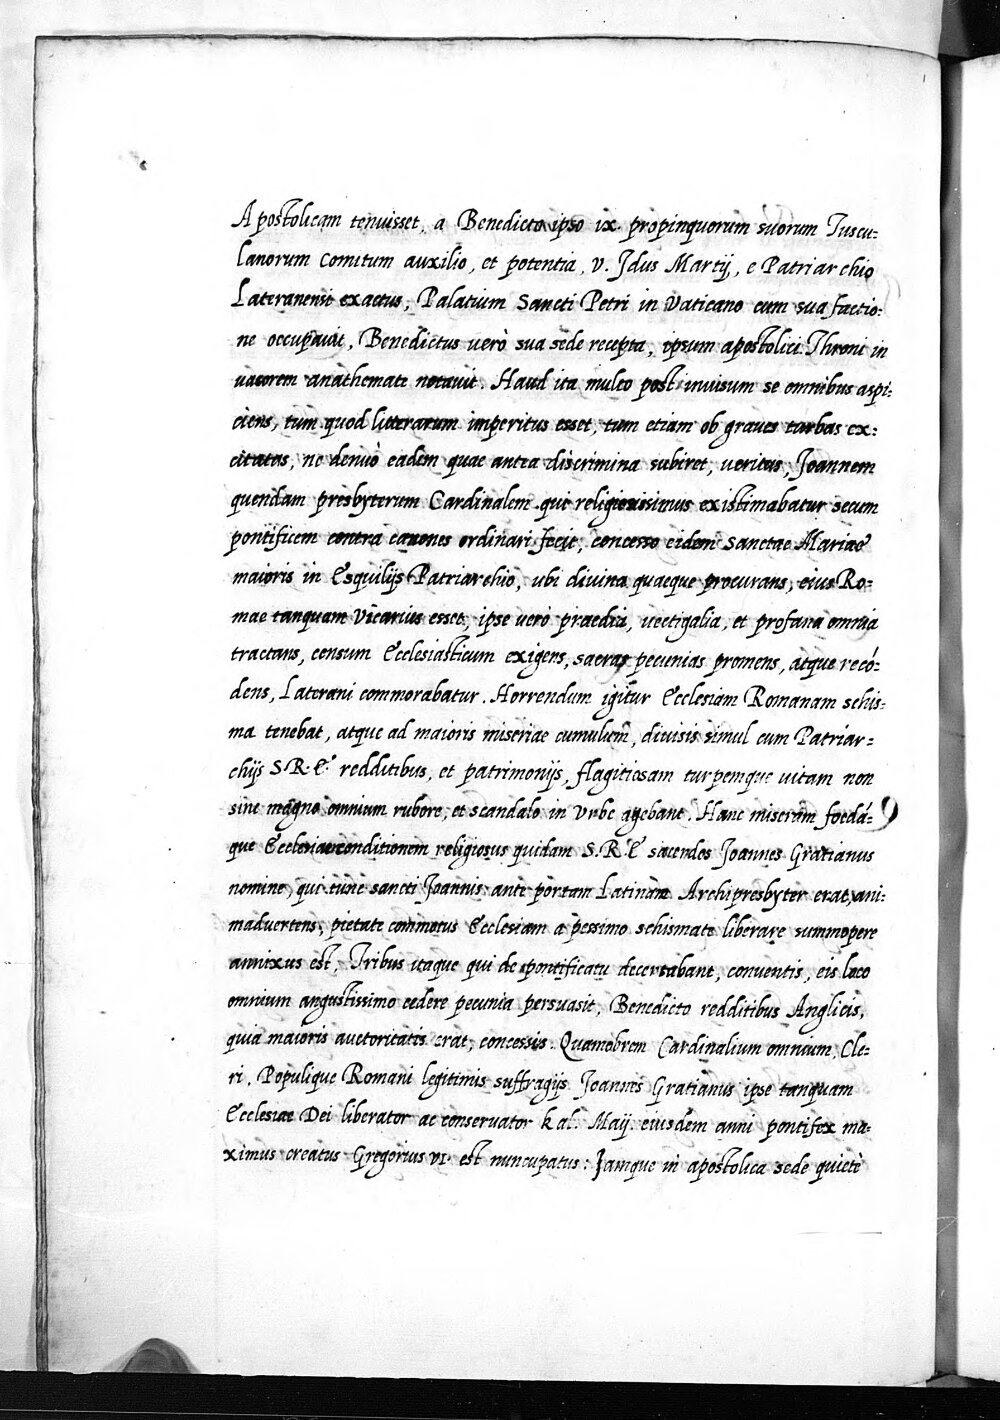 Apostolicam tenuisset, a Benedicto ipso ix. propinquorum suorum Tuscu-
lanorum Comitum auxilio, et potentia, v. Idus Martij, e Patriarchio
Lateranensi exactus, Palatium Sancti Petri in Vaticano cum sua factio-
ne occupauit, Benedictus uerò sua sede recepta, ipsum apostolici Throni in
uasorem anathemate notauit. Haud ita multo post inuisum se omnibus aspi-
ciens, tum quod litterarum imperitus esset, tum etiam ob graues turbas ex-
citatas, ne denuò eadem quae antea discrimina subiret, ueritus, Joannem
quendam presbyterum Cardinalem qui religiosissimus existimabatur secum
pontificem contra canones ordinari fecit, concesso eidem Sanctae Mariae
maioris in Esquilijs Patriarchio, ubi diuina quaeque procurans, eius Ro-
mae tanquam Vicarius esset, ipse uerò praedia, uectigalia, et profana omnia
tractans, censum Ecclesiasticum exigens, sacras pecunias promens, atque recó-
dens, Laterani commorabatur. Horrendum igitur Ecclesiam Romanam schis-
ma tenebat, atque ad maioris miseriae cumulum, diuisis simul cum Patriar-
chijs S.R.E. redditibus, et patrimonijs, flagitiosam turpemque uitam non
sine magno omnium rubore, et scandalo in Vrbe agebant. Hanc miseram foedá-
que Ecclesiae conditionem religiosus quidam S.R.E sacerdos Joannes Gratianus
nomine, qui tunc sancti Joannis ante portam Latinam Archipresbyter erat, ani-
maduertens, pietate commotus Ecclesiam a pessimo schismate liberare summopere
annixus est, Tribus itaque qui de pontificatu decertabant, conuentis, eis loco
omnium angustissimo cedere pecunia persuasit, Benedicto redditibus Anglicis,
quia maioris auctoritatis erat, concessis. Quamobrem Cardinalium omnium, Cle-
ri, Populique Romani legitimis suffragijs Joannes Gratianus ipse tanquam
Ecclesiae Dei liberator ac conseruator kal. Maij eiusdem anni pontifex ma-
ximus creatus Gregorius VI. est nuncupatus: Jamque in apostolica sede quietè